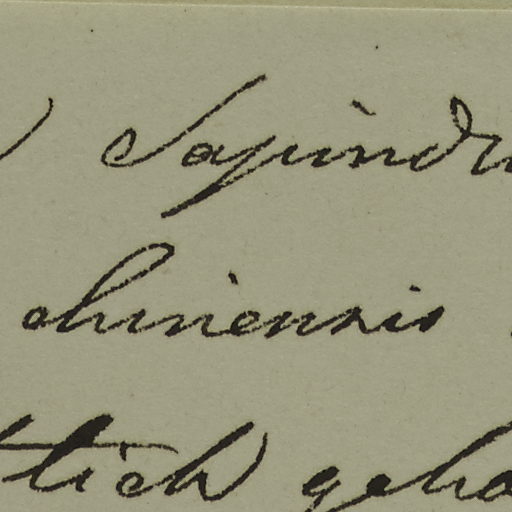 Sapindu
chinensis
tlich geho